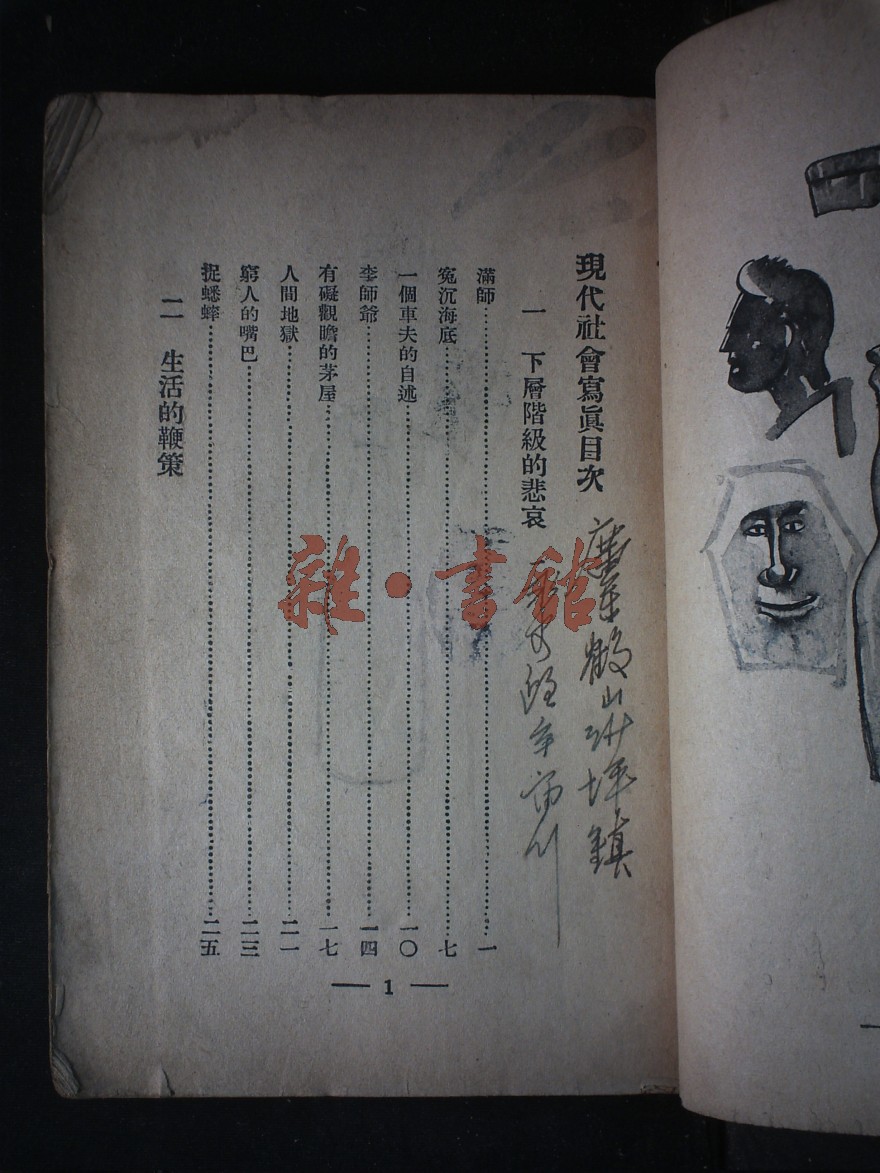 現代社會寫眞目次
一　下層階級的悲哀
滿師……一
寃沉海底……七
一個車夫的自述……一〇
李師爺……一四
有礙觀瞻的茅屋……一七
人間地獄……二一
窮人的嘴巴……二三
捉蟋蟀……二五
二　生活的鞭策
— 1 —
雜·書館
鶴山 坪鎮